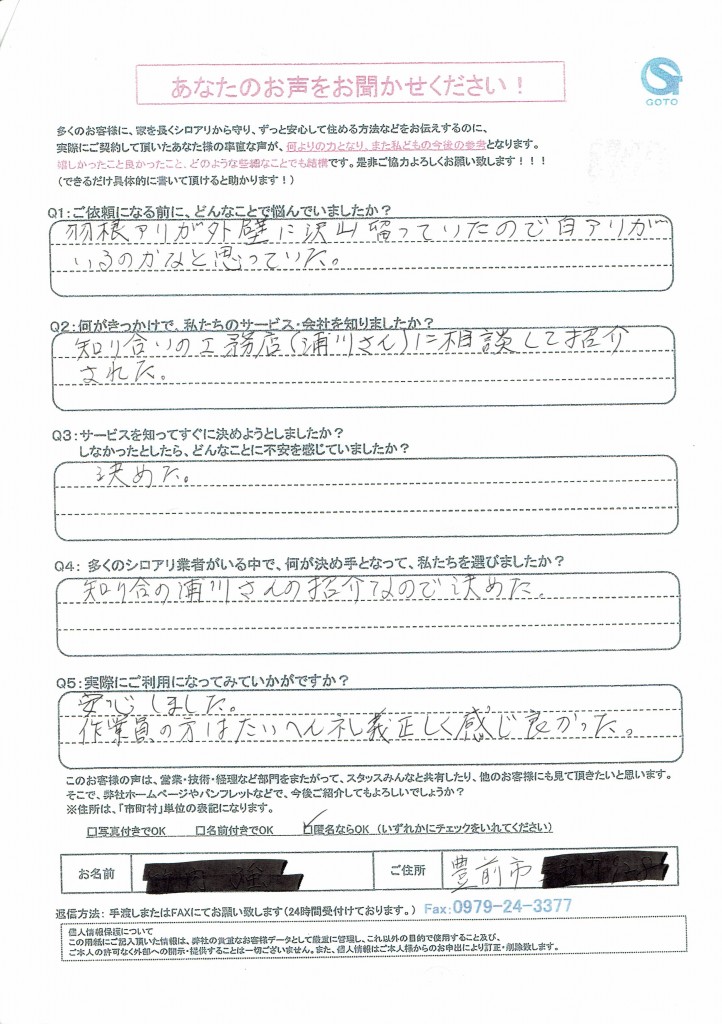 あなたのお声をお聞かせください！
GOTO
多くのお客様に、家を長くシロアリから守り、ずっと安心して住める方法などをお伝えするのに、
実際にご契約して頂いたあなた様の率直な声が、何よりの力となり、また私どもの今後の参考となります。
嬉しかったこと良かったこと、どのような些細なことでも結構です。是非ご協力よろしくお願い致します！！！
（できるだけ具体的に書いて頂けると助かります！）
Q1：ご依頼になる前に、どんなことで悩んでいましたか？
羽根アリが外壁に沢山留っていたので白アリが
いるのかなと思っていた。
Q2：何がきっかけで、私たちのサービス・会社を知りましたか？
知り合いの工務店（浦川さん）に相談して紹介
された。
Q3：サービスを知ってすぐに決めようとしましたか？
しなかったとしたら、どんなことに不安を感じていましたか？
決めた。
Q4： 多くのシロアリ業者がいる中で、何が決め手となって、私たちを選びましたか？
知り合の浦川さんの紹介なので決めた。
Q5：実際にご利用になってみていかがですか？
安心しました。
作業員の方はたいへん礼義正しく感じ良かった。
このお客様の声は、営業・技術・経理など部門をまたがって、スタッスみんなと共有したり、他のお客様にも見て頂きたいと思います。
そこで、弊社ホームページやパンフレットなどで、今後ご紹介してもよろしいでしょうか？
※住所は、「市町村」単位の表記になります。
□写真付きでOK □名前付きでOK ☑匿名ならOK （いずれかにチェックをいれてください）
お名前 ご住所 豊前市
返信方法： 手渡しまたはFAXにてお願い致します（24時間受付けております。） Fax：0979-24-3377
個人情報保護について
この用紙にご記入頂いた情報は、弊社の貴重なお客様データとして厳重に管理し、これ以外の目的で使用すること及び、
ご本人の許可なく外部への開示・提供することは一切ございません。また、個人情報はご本人様からのお申出により訂正・削除致します。